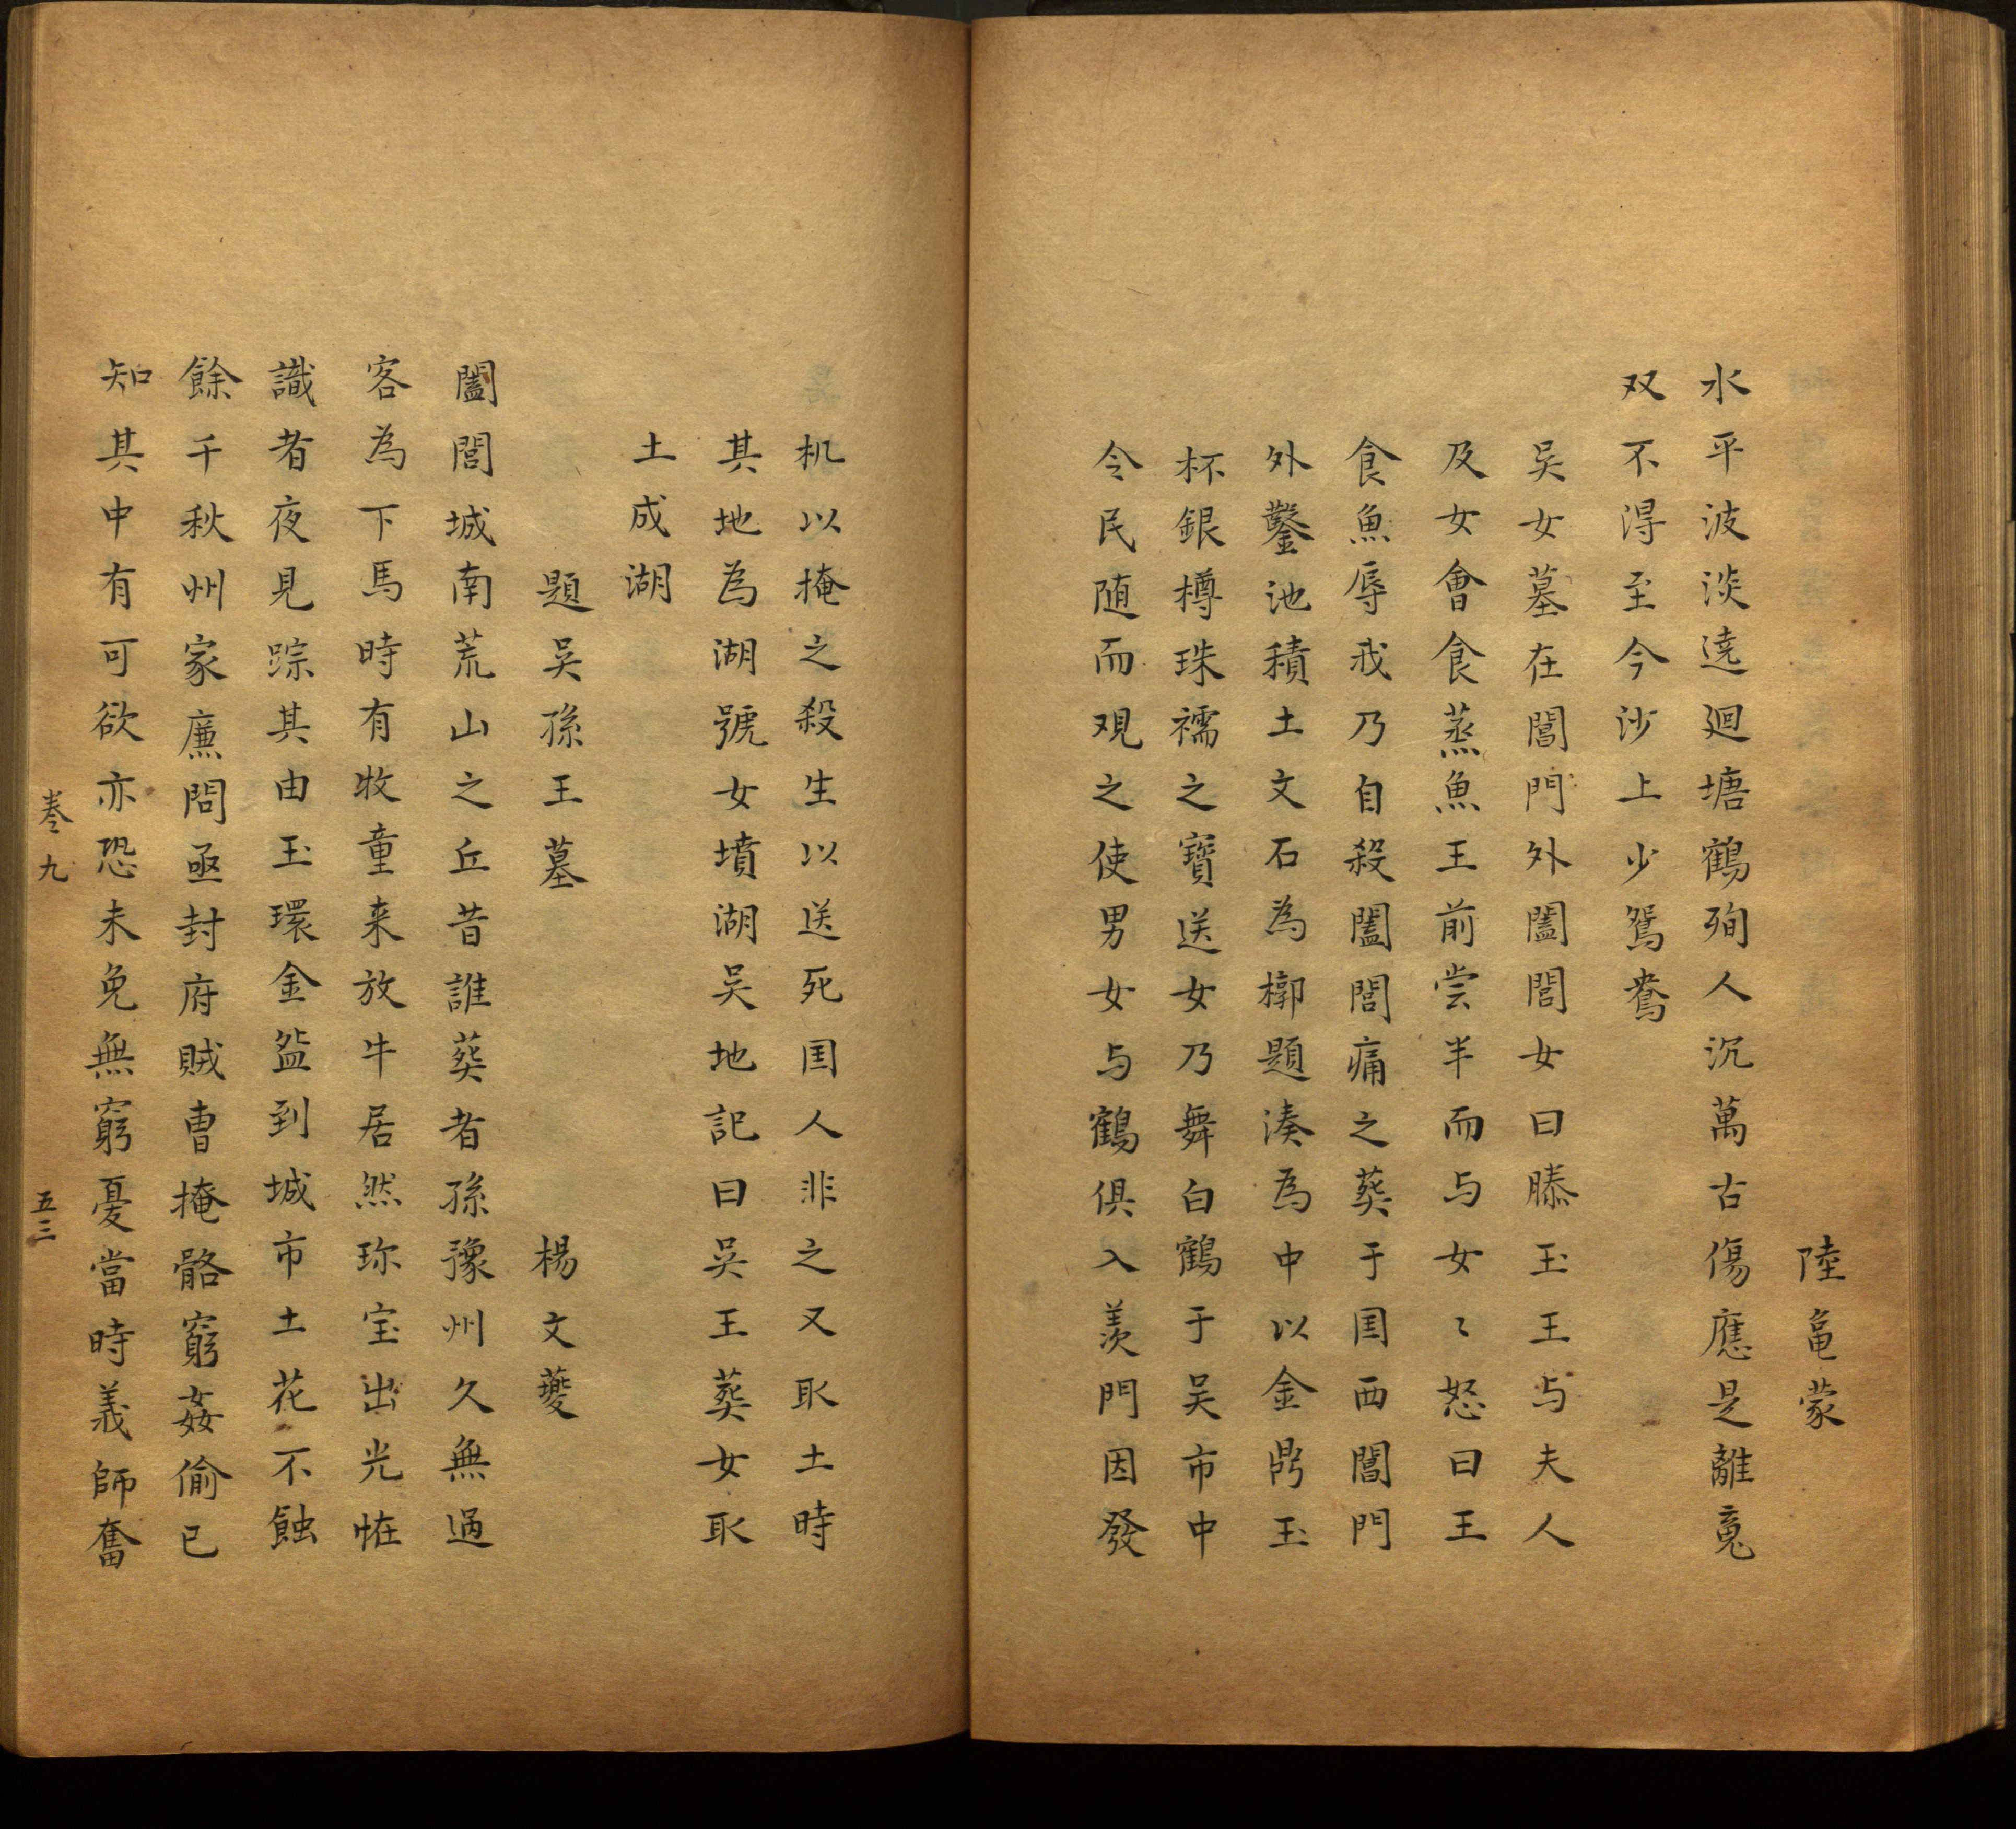 陸亀蒙
水平波淡遶廻塘鶴殉人沉萬古傷應是離䰟
双不得至今沙上少鴛鴦
吳女墓在閶門外闔閭女曰滕玉王与夫人
及女會食蒸魚王前尝半而与女〻怒曰王
食魚辱我乃自殺闔閭痛之葬于囯西閶門
外鑿池積土文石為槨題湊為中以金鼎玉
杯銀樽珠襦之寶送女乃舞白鶴于吴市中
令民随而观之使男女与鶴俱入羨門因發
机以掩之殺生以送死囯人非之又取土時
其地為湖號女墳湖吳地記曰吳王葬女取
土成湖
題吳孫王墓
楊文䕫
闔閭城南荒山之丘昔誰葬者孫豫州久無過
客為下馬時有牧童来放牛居然珎宝出光恠
識者夜見踪其由玉環金盌到城市土花不蝕
餘千秋州家廉問亟封府賊曹掩骼窮姦偷已
知其中有可欲亦恐未免無窮憂當時義師奮
卷九
五三